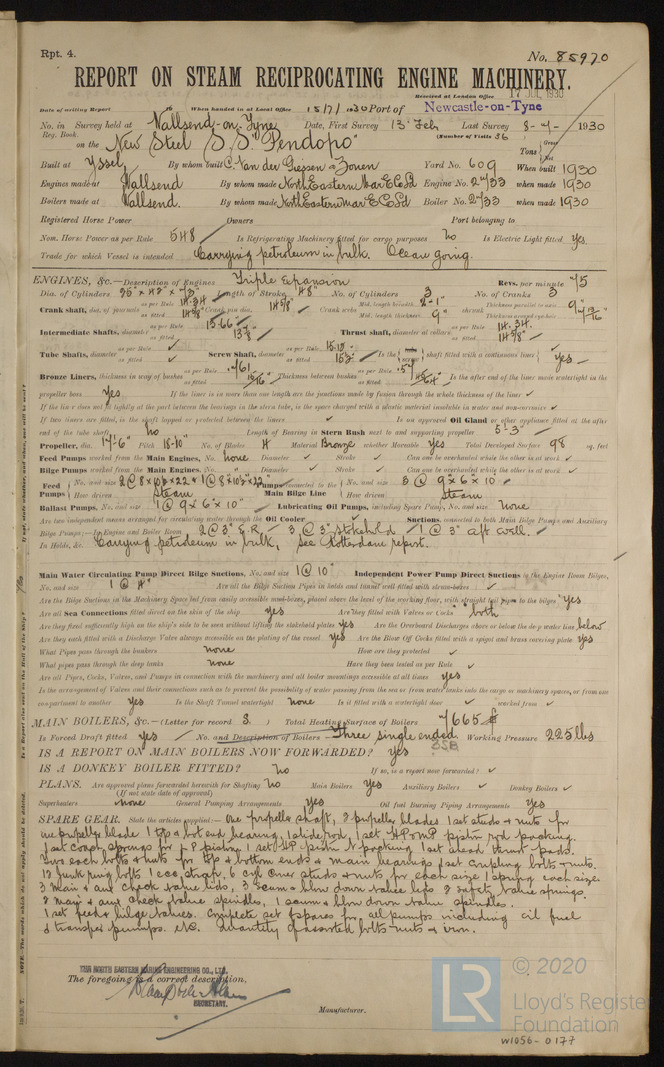 Rpt. 4.
No. 85970
REPORT ON STEAM RECIPROCATING ENGINE MACHINERY.
Received at London Office 17 JUL 1930
Date of writing Report 19 When handed in at Local Office 15/7/1930 Port of Newcastle-on-Tyne
No. in Survey held at Wallsend-on-Tyne Date, First Survey 13 Feb Last Survey 8-7-1930
Reg. Book. (Number of Visits 36
on the New Steel S.S. "Pendopo" Tons Gross Net
Built at Yssel By whom built C. Van der Giessen & Zonen Yard No. 609 When built 1930
Engines made at Wallsend By whom made North Eastern Mar E Co Ld Engine No. 2733 when made 1930
Boilers made at Wallsend. By whom made North Eastern Mar E Co Ld Boiler No. 2733 when made 1930
Registered Horse Power Owners Port belonging to
Nom. Horse Power as per Rule 548 Is Refrigerating Machinery fitted for cargo purposes No Is Electric Light fitted Yes
Trade for which Vessel is intended Carrying petroleum in bulk. Ocean going.
ENGINES, &c.—Description of Engines Triple Expansion Revs. per minute 75
Dia. of Cylinders Length of Stroke 48" No. of Cylinders 3 No. of Cranks 3
Crank shaft, dia. of journals as per Rule 14.34 as fitted 14 5/8" Crank pin dia. 14 5/8" Crank webs Mid. length breadth 2'-1" Mid. length thickness 9" shrunk Thickness parallel to axis 9"
Intermediate Shafts, diameter as per Rule 13.66 as fitted 13 7/8" Thrust shaft, diameter at collars as per Rule 14.34 as fitted 14 5/8"
Tube Shafts, diameter as per Rule as fitted Screw Shaft, diameter as per Rule as fitted Is the shaft fitted with a continuous liner yes
Bronze Liners, thickness in way of bushes as per Rule as fitted Thickness between bushes as per Rule as fitted Is the after end of the liner made watertight in the
propeller boss Yes If the liner is in more than one length are the junctions made by fusion through the whole thickness of the liner
If the liner does not fit tightly at the part between the bearings in the stern tube, is the space charged with a plastic material insoluble in water and non-corrosive
If two liners are fitted, is the shaft lapped or protected between the liners Is an approved Oil Gland or other appliance fitted at the after
end of the tube shaft No Length of Bearing in Stern Bush next to and supporting propeller 5'-3"
Propeller, dia. 17'-6" Pitch No. of Blades 4 Material Bronze whether Moveable Yes Total Developed Surface 98 sq. feet
Feed Pumps worked from the Main Engines, No. None Diameter Stroke Can one be overhauled while the other is at work
Bilge Pumps worked from the Main Engines, No. None Diameter Stroke Can one be overhauled while the other is at work
Feed Pumps No. and size How driven Steam Pumps connected to the Main Bilge Line No. and size 3 @ 9" x 6" x 10 How driven Steam
Ballast Pumps, No. and size 1 @ 9 x 6 x 10" Lubricating Oil Pumps, including Spare Pump, No. and size None
Are two independent means arranged for circulating water through the Oil Cooler Suctions, connected to both Main Bilge Pumps and Auxiliary
Bilge Pumps:—In Engine and Boiler Room 2 @ 3" E.R. 3 @ 3" Stokehold 1 @ 3" aft well.
In Holds, &c. Carrying petroleum in bulk, See Rotterdam report.
Main Water Circulating Pump Direct Bilge Suctions, No. and size 1 @ 10" Independent Power Pump Direct Suctions to the Engine Room Bilges,
No. and size 1 @ 4" Are all the Bilge Suction Pipes in holds and tunnel well fitted with strum-boxes
Are the Bilge Suctions in the Machinery Space led from easily accessible mud-boxes, placed above the level of the working floor, with straight tail pipes to the bilges Yes
Are all Sea Connections fitted direct on the skin of the ship yes Are they fitted with Valves or Cocks both
Are they fixed sufficiently high on the ship's side to be seen without lifting the stokehold plates yes Are the Overboard Discharges above or below the deep water line below
Are they each fitted with a Discharge Valve always accessible on the plating of the vessel yes Are the Blow Off Cocks fitted with a spigot and brass covering plate yes
What Pipes pass through the bunkers none How are they protected
What pipes pass through the deep tanks none Have they been tested as per Rule
Are all Pipes, Cocks, Valves, and Pumps in connection with the machinery and all boiler mountings accessible at all times yes
Is the arrangement of Valves and their connections such as to prevent the possibility of water passing from the sea or from water tanks into the cargo or machinery spaces, or from one
compartment to another yes Is the Shaft Tunnel watertight none Is it fitted with a watertight door worked from
MAIN BOILERS, &c.—(Letter for record S.) Total Heating Surface of Boilers 7665
Is Forced Draft fitted yes No. and Description of Boilers Three single ended Working Pressure 225 lbs
IS A REPORT ON MAIN BOILERS NOW FORWARDED? yes
IS A DONKEY BOILER FITTED? No If so, is a report now forwarded?
PLANS. Are approved plans forwarded herewith for Shafting No Main Boilers Yes Auxiliary Boilers Donkey Boilers
(If not state date of approval)
Superheaters none General Pumping Arrangements Yes Oil fuel Burning Piping Arrangements Yes
SPARE GEAR. State the articles supplied:— One propeller shaft, 2 propeller blades 1 set studs & nuts for
one propeller blade 1 top & bot end bearing, 1 slide rod, 1 set HP & MP piston rod packing.
1 set coach springs for LP piston, 1 set HP piston packing 1 set ahead thrust pads.
Two each bolts & nuts for top & bottom ends & main bearings 1 set coupling bolts & nuts.
12 junk ring bolts 1 ecc. strap, 6 cyl cover studs & nuts for each size 1 spring each size.
3 main & aux check valve lids, 3 scum & blow down valve lids 2 safety valve springs.
2 main & aux check valve spindles, 1 scum & blow down valve spindles.
1 set feed & bilge valves. Complete set of spares for all pumps including oil fuel
& transfer pumps. etc. Quantity of assorted bolts & nuts & iron.
THE NORTH EASTERN MARINE ENGINEERING CO., LTD.
The foregoing is a correct description,
SECRETARY.
Manufacturer.
© 2020
LR
Lloyd's Register
Foundation
W1056-0177